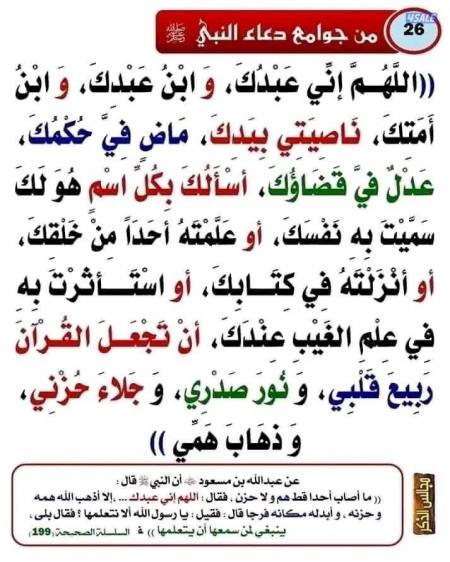 4SALE
26
من جوامع دعاء النبي ﷺ
((اللَّهُمَّ إنِّي عَبْدُكَ، وَ ابْنُ عَبْدِكَ، وَ ابْنُ
أَمَتِكَ، نَاصِيَتِي بِيَدِكَ، مَاضٍ فِيَّ حُكْمُكَ،
عَدْلٌ فِيَّ قَضَاؤُكَ، أسْأَلُكَ بِكُلِّ اسْمٍ هُوَ لكَ
سَمَّيْتَ بِهِ نَفْسَكَ، أو عَلَّمْتَهُ أحَدًا مِنْ خَلْقِكَ،
أو أنْزَلْتَهُ فِي كِتَابِكَ، أو اسْتَأثرْتَ بِهِ
فِي عِلْمِ الغَيْبِ عِنْدَكَ، أنْ تَجْعَلَ القُرْآنَ
رَبِيعَ قَلْبِي، وَ نُورَ صَدْرِي، وَ جَلاءَ حُزْنِي،
وَ ذهَابَ هَمِّي ))
عن عبدالله بن مسعود ﷺ أن النبي ﷺ قال :
(( ما أصاب أحدا قط هم ولا حزن ، فقال : اللهم إني عبدك ... ،إلا أذهب الله همه
و حزنه ، و أبدله مكانه فرجا قال : فقيل : يا رسول الله ألا نتعلمها ؟ فقال بلى ،
ينبغي لمن سمعها أن يتعلمها )) ؛ السلسلة الصحيحة (199)
مجالس الذكر